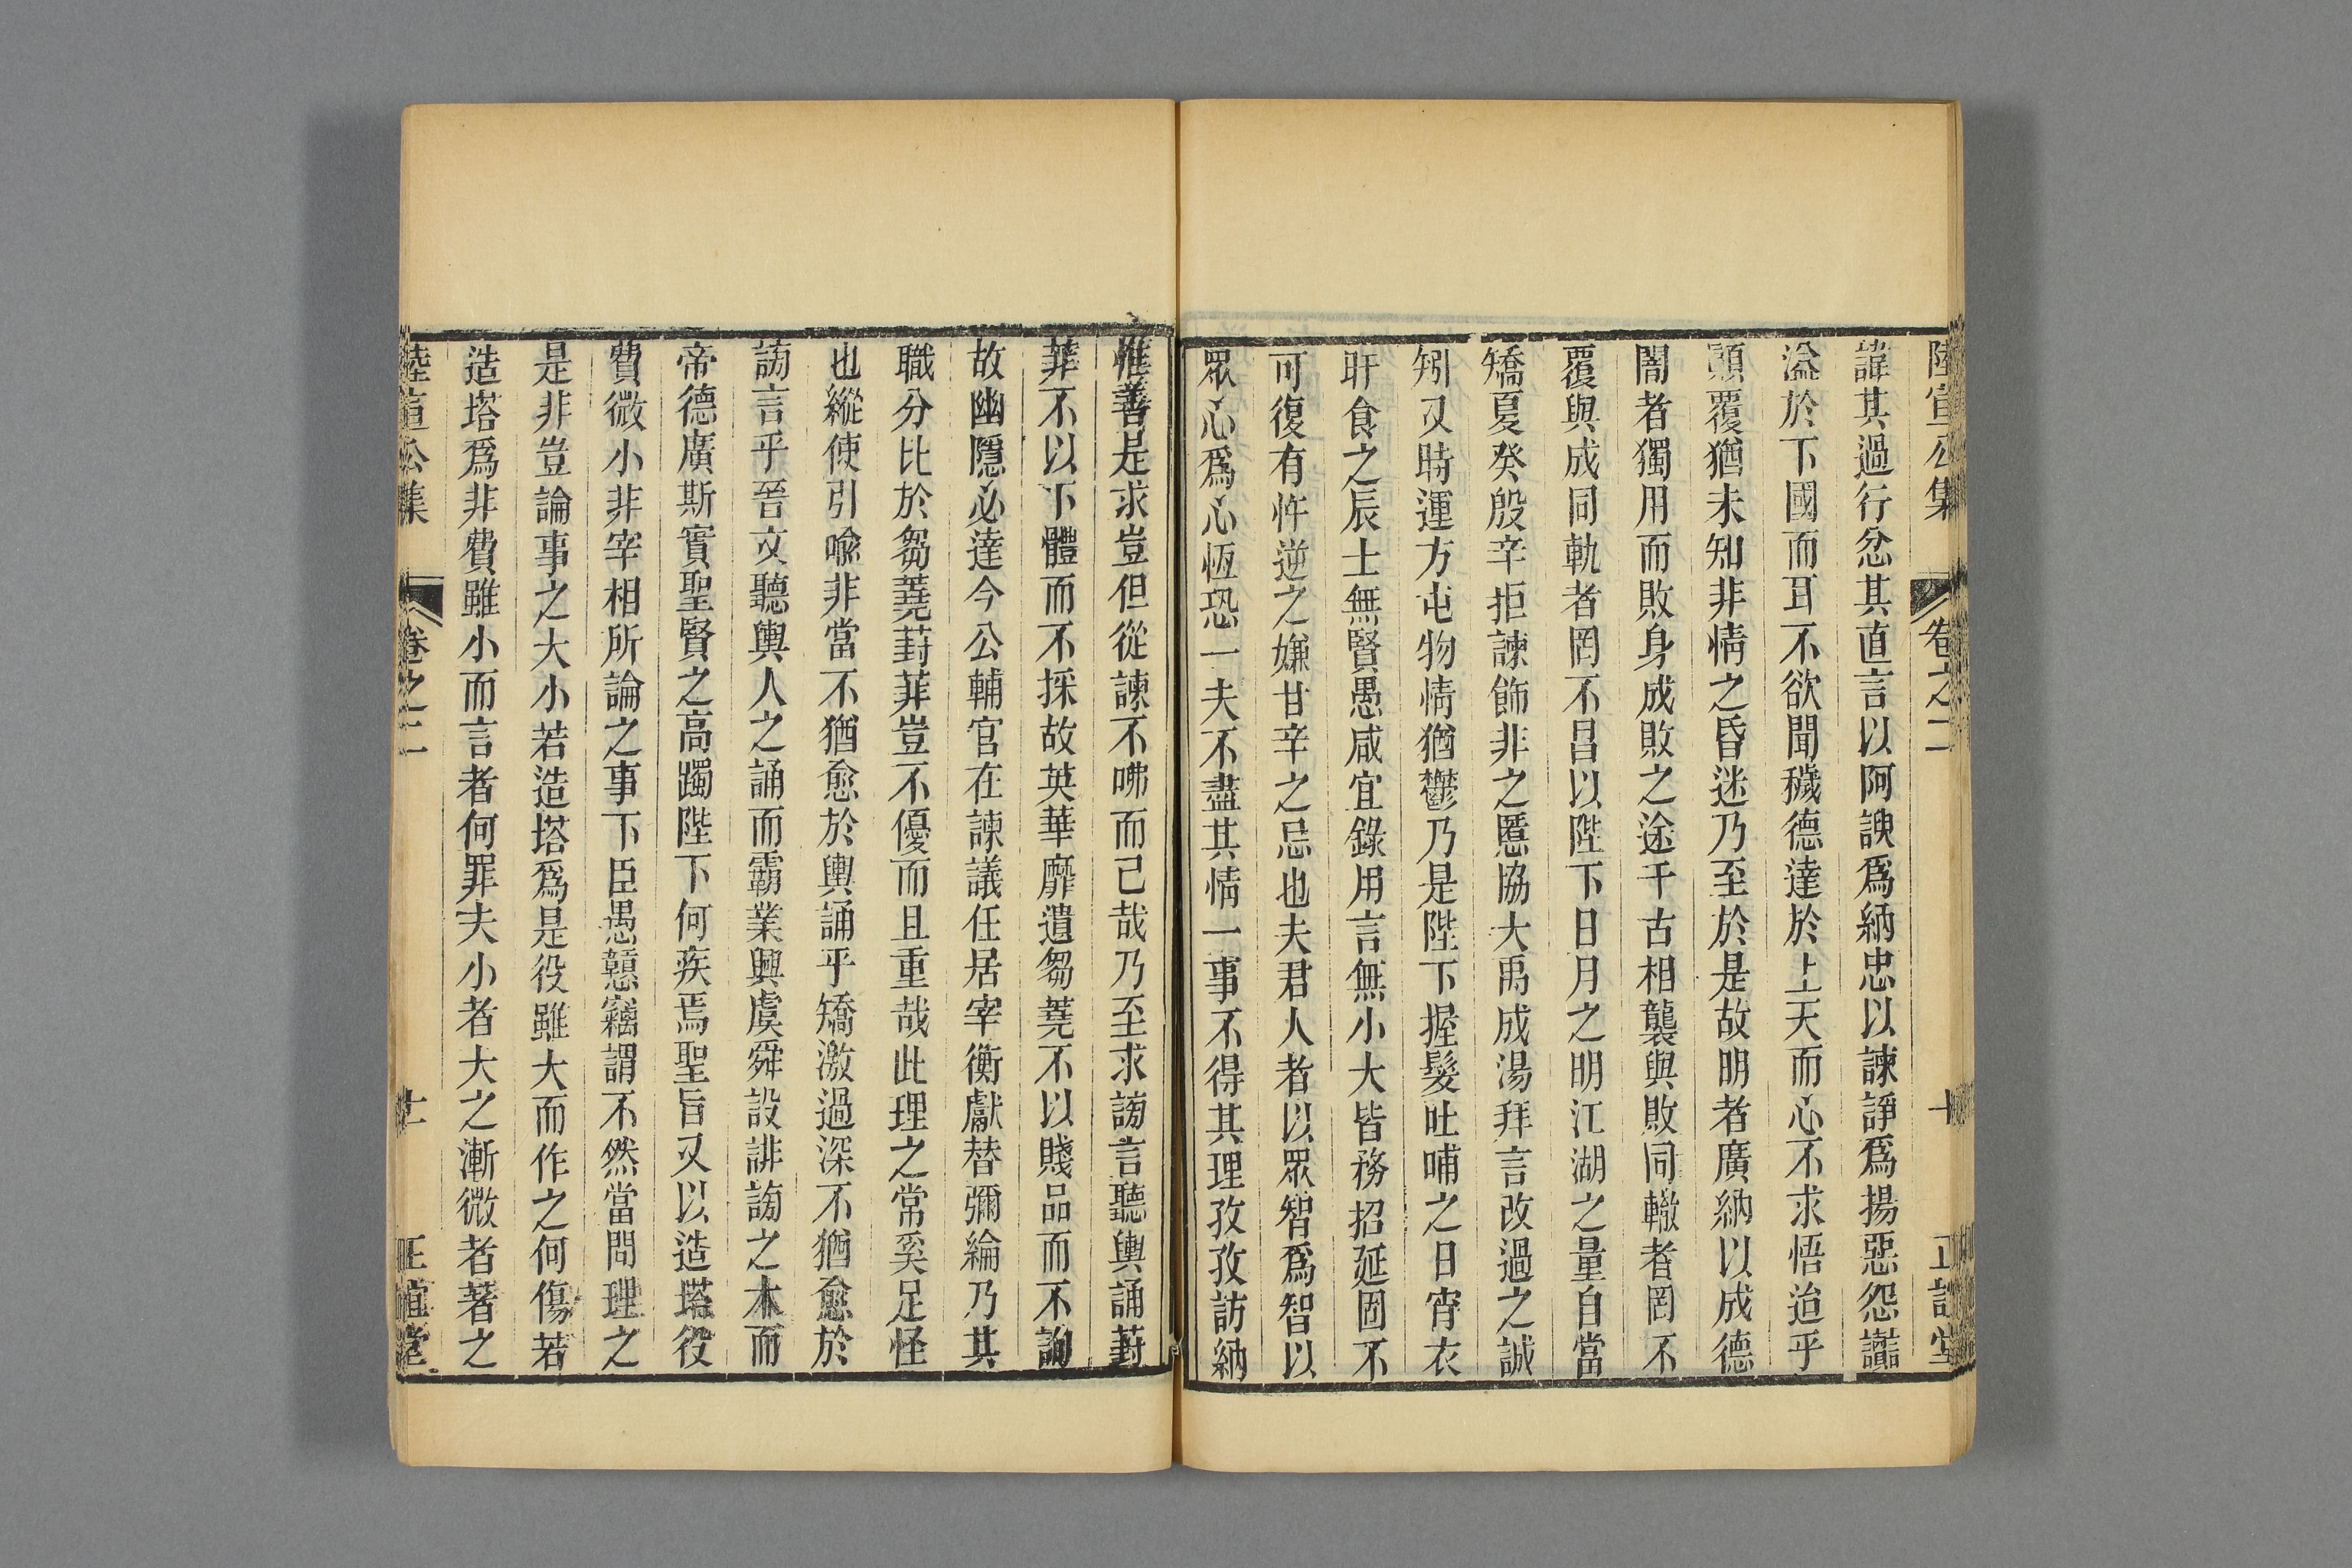 陸宣公集 卷之二 十 正誼堂
諱其過行忿其直言以阿諛爲納忠以諫諍爲揚惡怨讟
溢於下國而耳不欲聞穢德達於上天而心不求悟迨乎
顛覆猶未知非情之昏迷乃至於是故明者廣納以成德
闇者獨用而敗身成敗之途千古相襲與敗同轍者罔不
覆與成同軌者罔不昌以陛下日月之明江湖之量自當
矯夏癸殷辛拒諫飾非之慝協大禹成湯拜言改過之誠
矧又時運方屯物情猶鬱乃是陛下握髮吐哺之日宵衣
旰食之辰士無賢愚咸宜錄用言無小大皆務招延固不
可復有忤逆之嫌甘辛之忌也夫君人者以眾智爲智以
眾心爲心恆恐一夫不盡其情一事不得其理孜孜訪納
惟善是求豈但從諫不咈而已哉乃至求謗言聽輿誦葑
菲不以下體而不採故英華靡遺芻蕘不以賤品而不詢
故幽隱必達今公輔官在諫議任居宰衡獻替彌綸乃其
職分比於芻蕘葑菲豈不優而且重哉此理之常奚足怪
也縱使引喻非當不猶愈於輿誦乎矯激過深不猶愈於
謗言乎晉文聽輿人之誦而霸業興虞舜設誹謗之木而
帝德廣斯實聖賢之高躅陛下何疾焉聖旨又以造塔役
費微小非宰相所論之事下臣愚戇竊謂不然當問理之
是非豈論事之大小若造塔爲是役雖大而作之何傷若
造塔爲非費雖小而言者何罪夫小者大之漸微者著之
陸宣公集 卷之二 十一 正誼堂